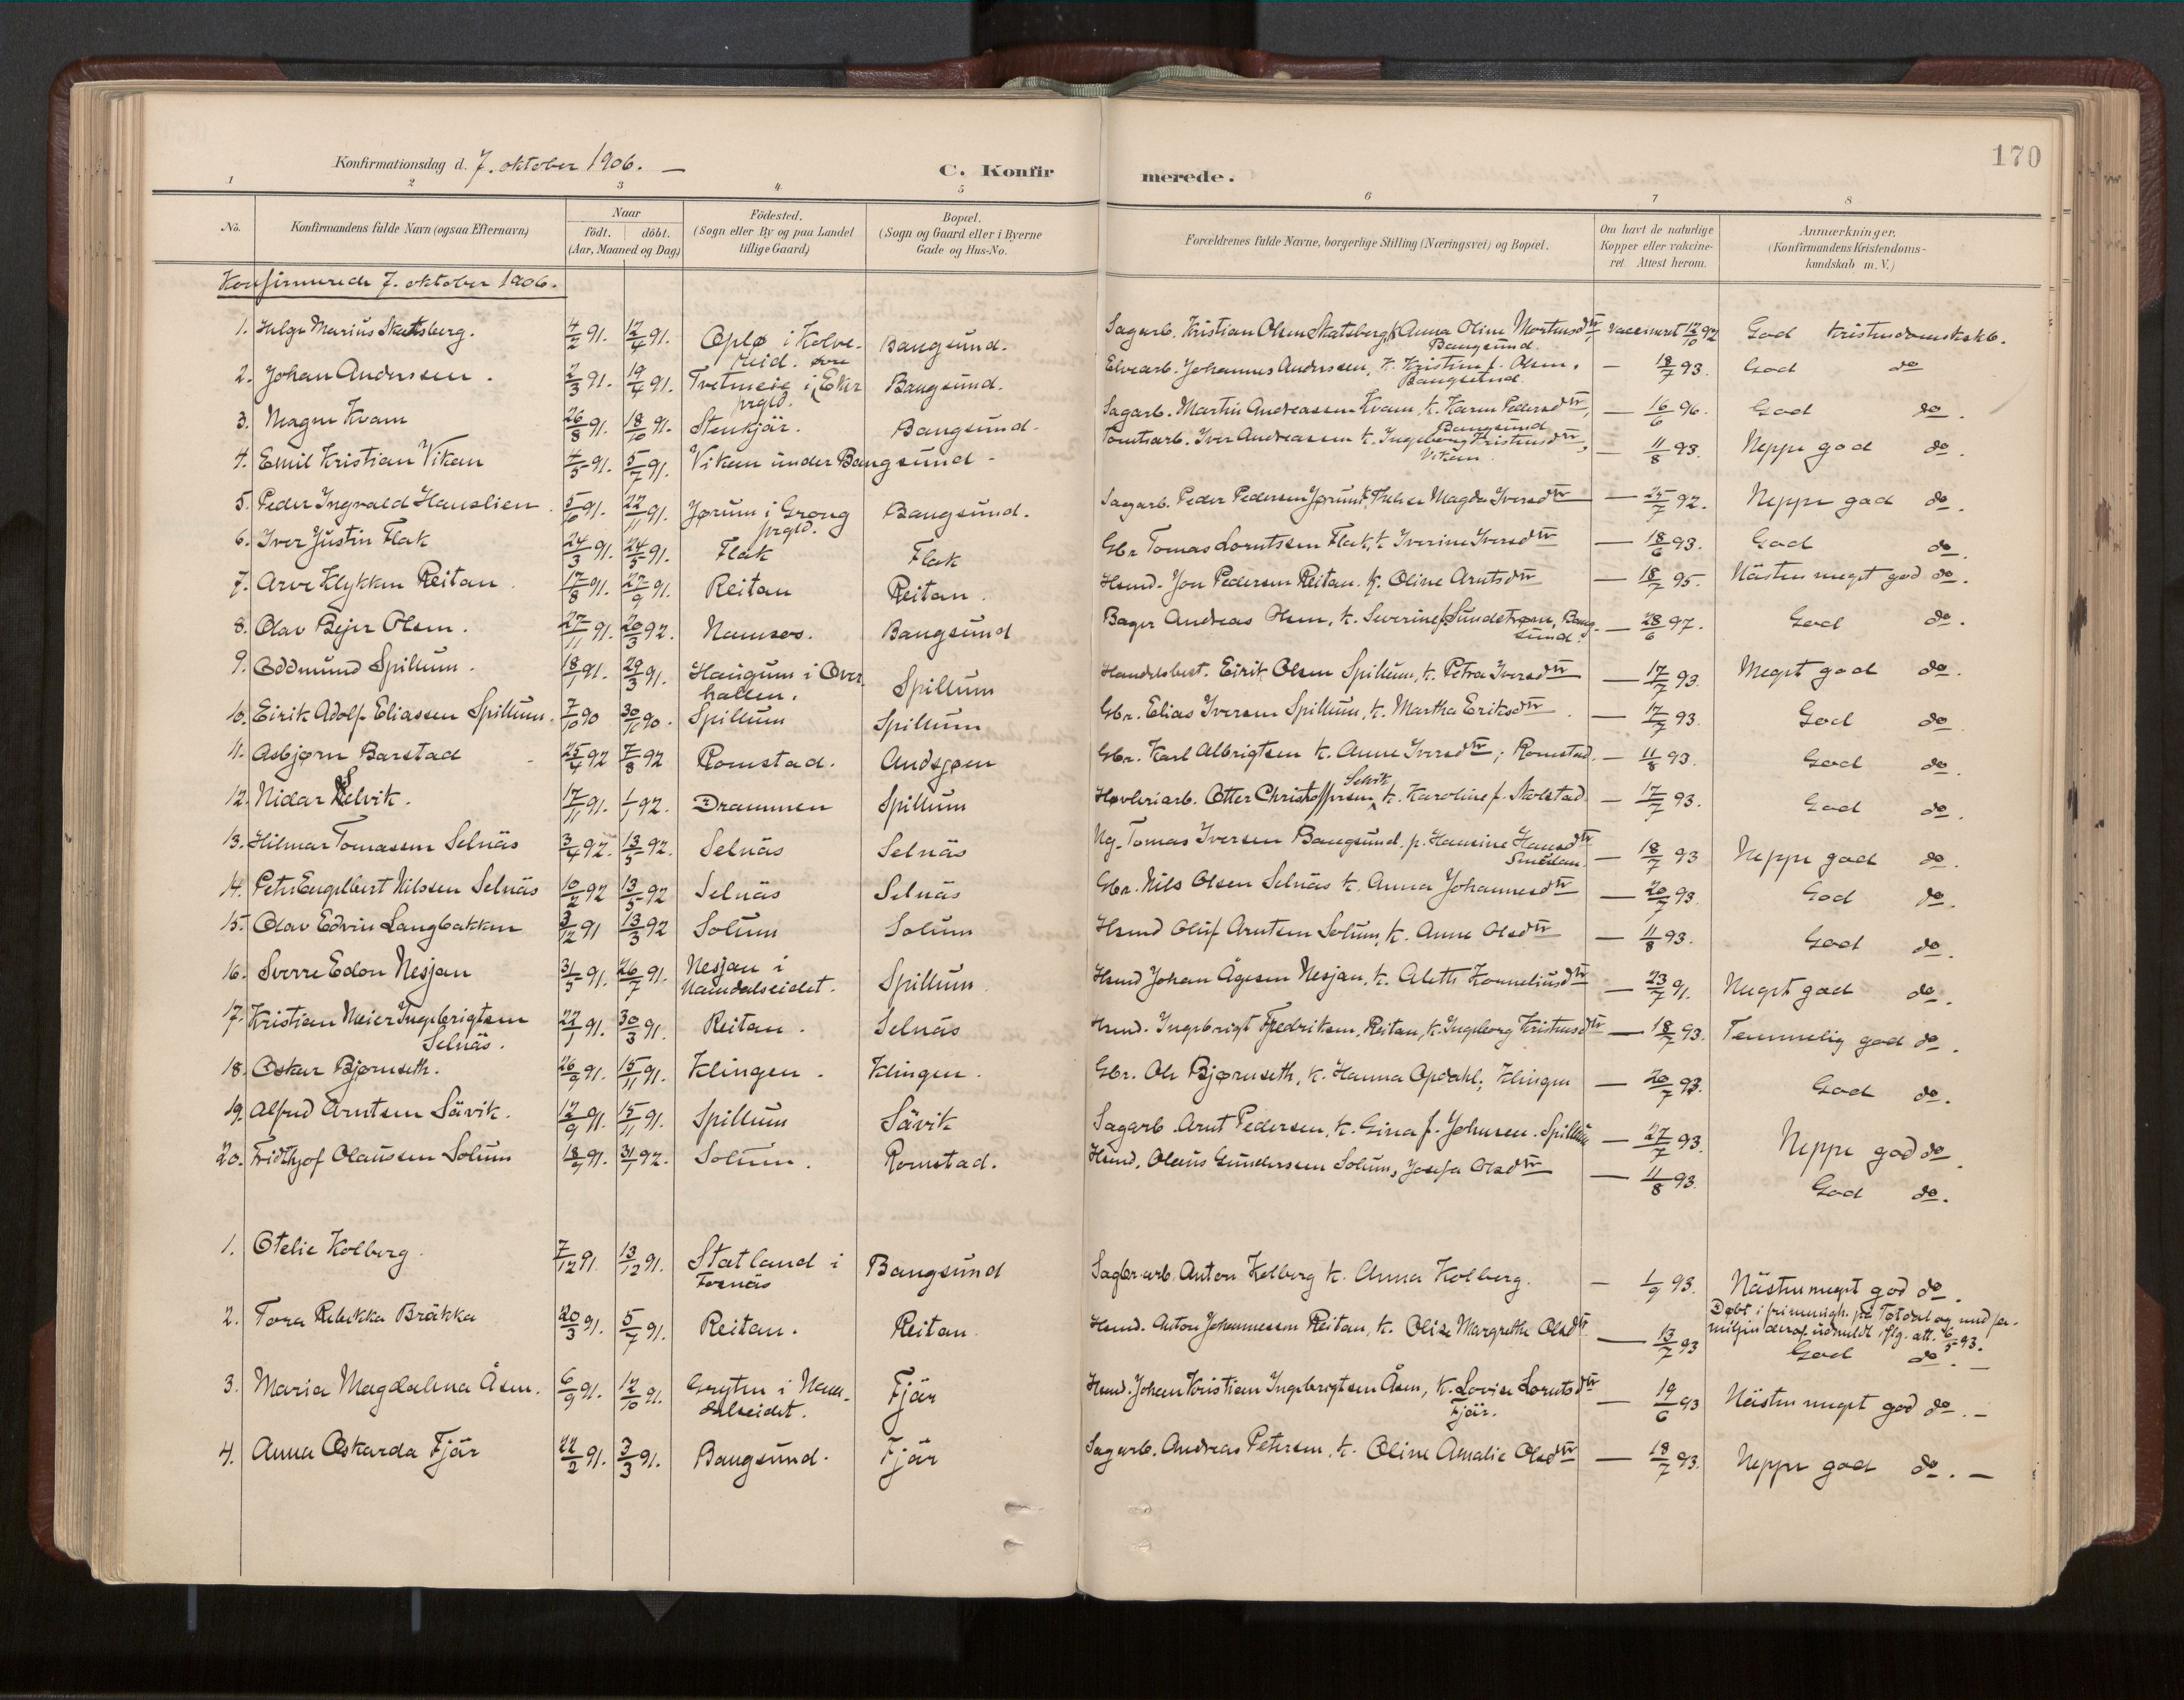 170
Konfirmationsdag d. 7. oktober 1906. —
C. Konfirmerede.
1 2 3 4 5 6 7 8
No. Konfirmandens fulde Navn (ogsaa Efternavn) Naar födt. döbt. (Aar, Maaned og Dag) Födested. (Sogn eller By og paa Landet tillige Gaard) Bopæl. (Sogn og Gaard eller i Byerne Gade og Hus-No. Forældrenes fulde Navne, borgerlige Stilling (Næringsvei) og Bopæl. Om havt de naturlige Kopper eller vakcineret. Attest herom. Anmærkninger. (Konfirmandens Kristendomskundskab m. V.)
Konfirmerede 7. oktober 1906.
1. Helge Marius Skatsberg. 4/2 91. 12/4 91. Oplø i Kolvereid. Bangsund. Sagarb. Kristian Olsen Skatsberg, k. Anna Oline Mortensdtr, Bangsund. Vaccineret 12/10 92 God Kristendomskskb.
2. Johan Anderssen. 2/3 91. 19/4 91. Tvetmeie i øvre Eker prgld. Bangsund. Elvearb. Johannes Anderssen, k. Kristine f. Olsen, Bangsund. — 18/7 93. God do
3. Magne Kvam 26/8 91. 18/10 91. Stenkjär. Bangsund. Sagarb. Martin Andreassen Kvam, k. Karen Pedersdtr, Bangsund — 16/6 96. God do.
4. Emil Kristian Vikan 4/5 91. 5/7 91. Vikan under Bangsund. Tomtearb. Iver Andreassen k. Ingeborg Kristensdtr, Vikan. — 11/8 93. Neppe god do.
5. Peder Ingvald Hanslien. 5/10 91. 22/11 91. Jørum i Grong prgld. Bangsund. Sagarb. Peder Pedersen Jørum, k. Magda Iversdtr — 25/7 92. Neppe god do.
6. Iver Justin Flak 24/3 91. 24/5 91. Flak Flak Gbr. Tomas Lorntssen Flak, k. Iverine Iversdtr — 18/6 93. God do.
7. Arve Klykken Reitan. 17/8 91. 27/9 91. Reitan Reitan. Husmd. Jon Pedersen Reitan. k. Oline Arntsdtr — 18/7 95. Nästen meget god do.
8. Olav Bejer Olsen. 27/11 91. 20/3 92. Namsos. Bangsund Bager Andreas Olsen, k. Severine f. Sundstrøm, Bangsund. — 28/6 97. God do.
9. Oddmund Spillum. 18/1 91. 29/3 91. Haugum i Overhallen. Spillum Handelsbest. Eirik Olsen Spillum, k. Petra Iversdtr — 17/7 93. Meget god do.
10. Eirik Adolf Eliassen Spillum. 7/10 90 30/11 90. Spillum Spillum Gbr. Elias Iversen Spillum, k. Martha Eriksdtr. — 17/7 93. God do.
11. Asbjørn Barstad 25/4 92 7/8 92 Romstad. Andsjøen Gbr. Karl Albrigtsen k. Anne Iversdtr; Romstad. — 11/8 93. God do.
12. Nidar Selvik. 17/11 91. 1/1 92. Drammen Spillum Høvleriarb. Otter Christoffersen Selvik k. Karoline f. Skolstad. — 17/7 93. God do.
13. Hilmar Tomassen Selnäs 3/4 92. 13/5 92. Selnäs Selnäs Ug. Tomas Iversen Bangsund. p. Hansine Hansdtr — 18/7 93 Neppe god do.
14. Peter Engelbert Nilssen Selnäs 10/2 92 13/5 92 Selnäs Selnäs Gbr. Nils Olsen Selnäs k. Anna Johannesdtr — 20/7 93. God do.
15. Olav Edvin Langbakken 3/12 91 13/3 92 Solum Solum Husmd Oluf Arntsen Solum, k. Anne Olsdtr — 11/8 93. God do.
16. Sverre Edon Nesjan 31/5 91. 26/7 91. Nesjan i Namdalseidet. Spillum. Husmd Johan Ågesen Nesjan, k. Aleth Korneliusdtr — 23/7 91. Meget god do.
17. Kristian Meier Ingebrigtsen Selnäs. 22/1 91. 30/3 91. Reitan. Selnäs Husmd. Ingebrigt Fredriksen, Reitan, k. Ingeborg Kristensdtr — 18/7 93. Temmelig god do.
18. Oskar Bjørnseth. 26/9 91. 15/11 91. Klingen. Klingen. Gbr. Ole Bjørnseth, k. Hanna Opdahl, Klingen — 20/7 93. God do.
19. Alfred Arntsen Sävik. 12/9 91. 15/11 91. Spillum Sävik Sagarb. Arnt Pedersen, k. Gina f. Johnsen. Spillum — 27/7 93. Neppe god do.
20. Fridthjof Olaussen Solum 18/9 91. 31/1 92. Solum. Romstad. Husmd. Olaus Gunderssen Solum, Josefa Olsdtr — 11/8 93. God do.
1. Otelie Kolberg. 7/12 91. 13/12 91. Statland i Fosnäs Bangsund Sagbr.arb. Anton Kolberg k. Anna Kolberg. — 1/9 93. Nästen meget god do.
2. Tora Rebekka Bräkka 20/3 91. 5/7 91. Reitan. Reitan. Husmd. Anton Johannessen Reitan, k. Olise Margrethe Olsdtr — 13/7 93 Døbt i frimenigh. på Totdal og med familjen deraf udmeldt iflg. att. 6/5 93. God do. —
3. Maria Magdalena Åsen. 6/9 91. 12/10 91. Gryten i Namdalseidet. Fjär Husmd. Johan Kristian Ingebrigtsen Åsen, k. Lovise Lorntsdtr Fjär. — 19/6 93 Nästen meget god do. —
4. Anna Oskarda Fjär 22/2 91. 3/3 91. Bangsund. Fjär Sagarb. Andreas Petersen, k. Oline Amalie Olsdtr — 18/7 93. Neppe god do. —